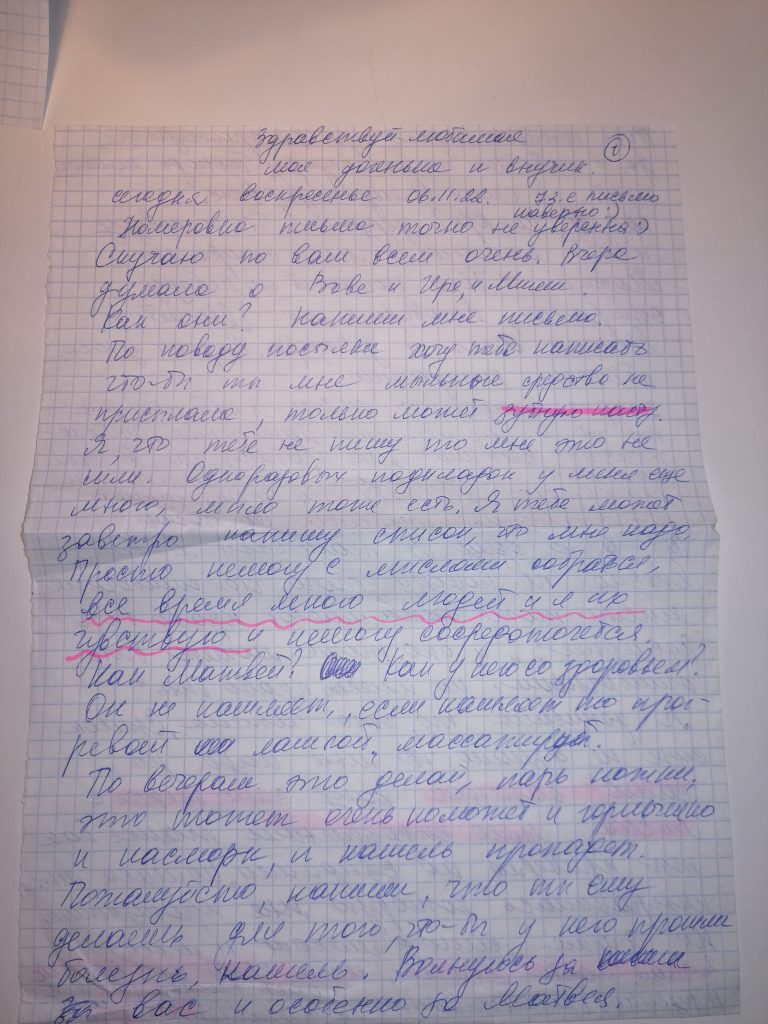 Здравствуй любимая
моя доченька и внучик. 1
сегодня воскресенье 06.11.22. 73-е письмо
наверно:)
Номеровка письма точно не уверенна:)
Скучаю по вам всем очень. Вчера
думала о Вове и Ире, и Миши.
Как они? Напиши мне письмо.
По поводу посылки хочу тебе написать
что-бы ты мне мыльные средство не
присылала, только может зубную пасту.
Я, что тебе не пишу то мне это не
шли. Одноразовых подкладок у меня еще
много, мыло тоже есть. Я тебе может
завтро напишу список, что мне надо.
Просто немогу с мыслями собратся,
все время много людей и я их
чувствую и немогу сосредоточется.
Как Матвей? Как у него со здоровьем?
Он не кашляет, если кашляет то прог-
ревай лампой, массажируй.
По вечерам это делай, парь ножки,
это может очень поможет и горлышко
и насморк, и кашель пропадет.
Пожалуйсто, напиши, что ты ему
делаешь для того, что-бы у него прошла
болезнь, кашель. Волнуюсь за
за вас и особенно за Матвея.